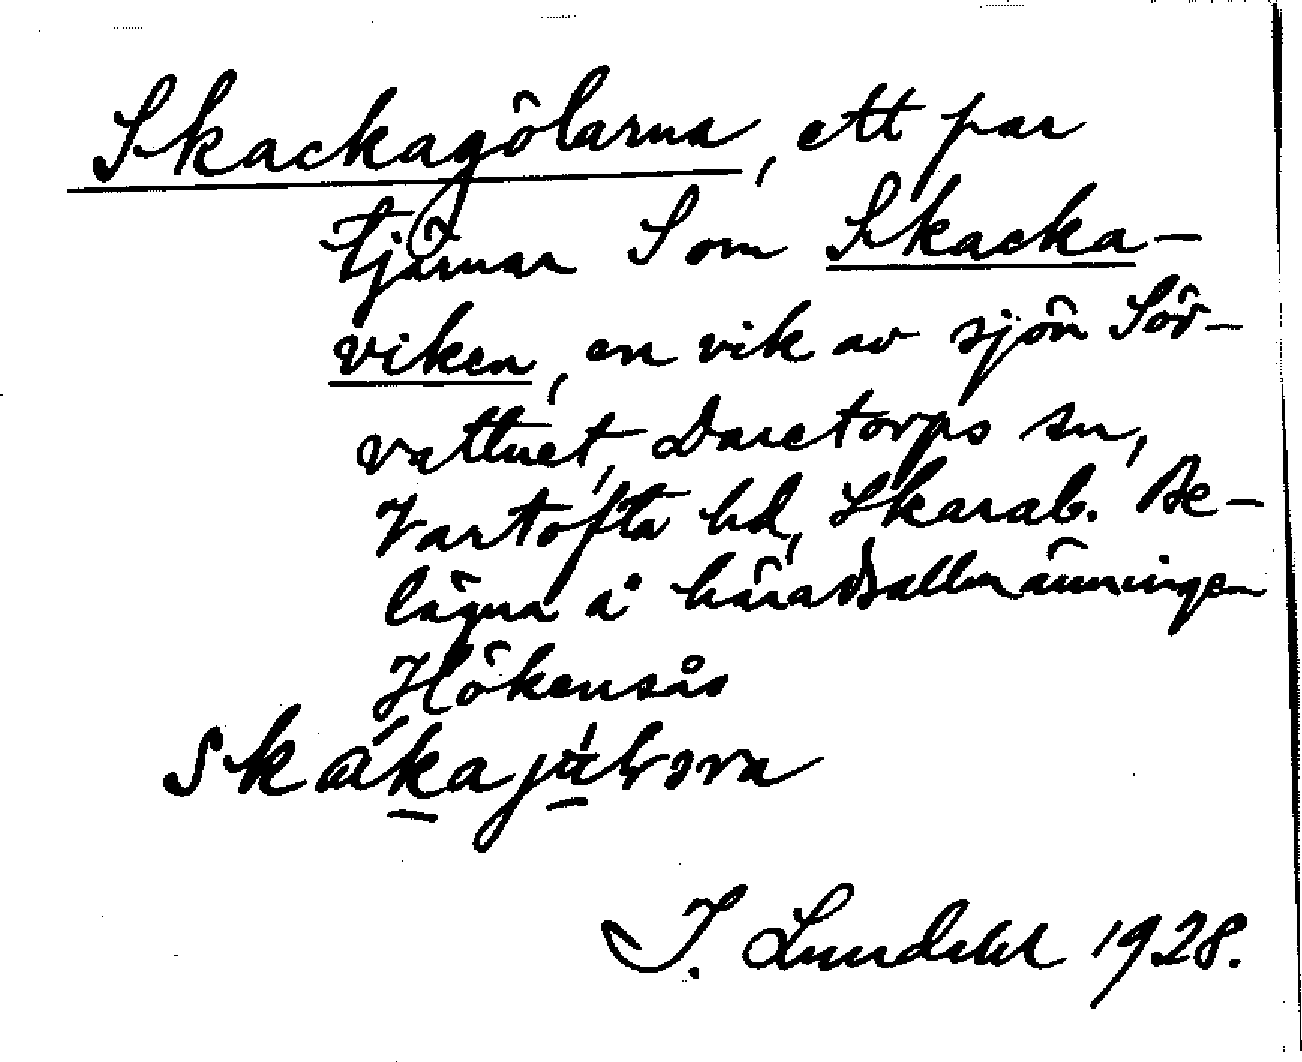 Skackagölarna, ett par
tjärnar som Skacka-
viken, en vik av sjön Sör-
vattnet, Daretorps sn,
Vartofta hd, Skarab. Be-
lägna å häradsallmänningen
Hökensås
J. Lundahl 1928.